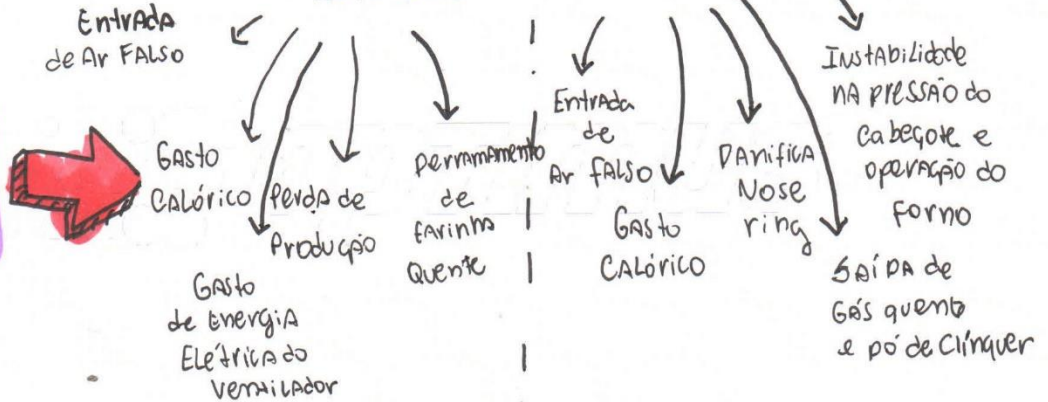 Entrada
de Ar FALSO
GASto
CALÓrico
Perda de
Produção
GASto
de Energia
Elétrica do
Ventilador
Derramamento
de
farinha
Quente
Entrada
de
Ar fALSO
GASto
CALÓrico
DAnifica
Nose
ring
InstAbilidade
nA pressão do
Cabeçote e
operação do
forno
SAÍDA de
GáS quente
e pó de Clínquer